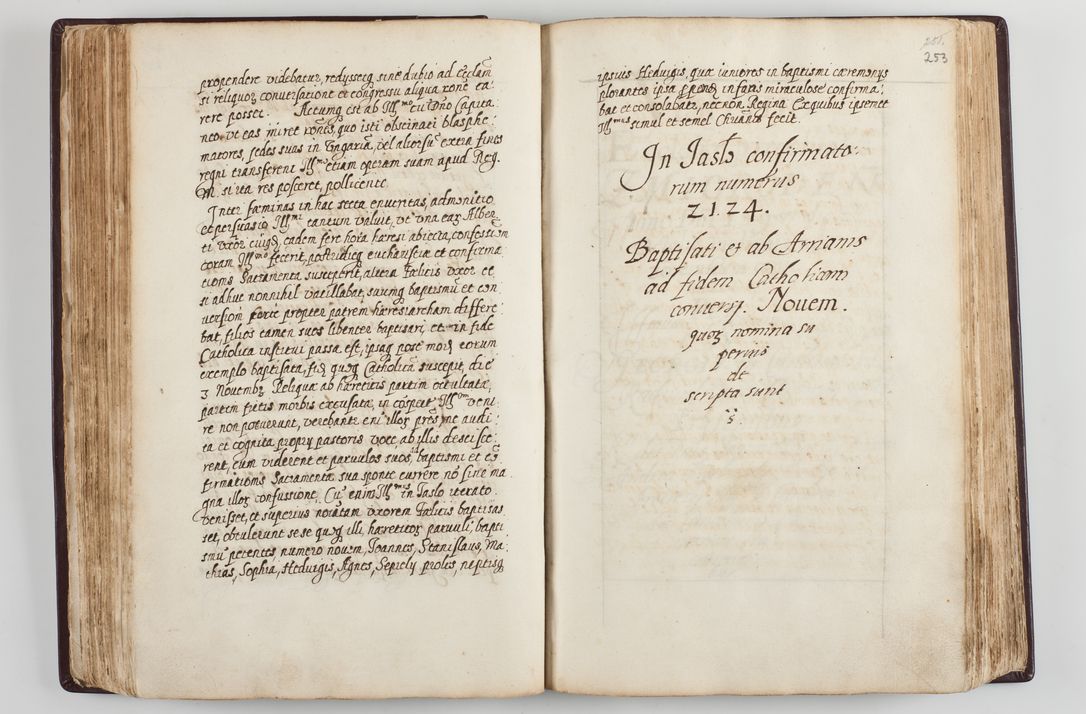 propendere videbatur, redyssecq sine dubio ad eccl̃am
si reliquoȝ conuersatione et congressu aliqua rõne ca-
rere posset. Actumq est ab Ill^mo cũ Dño Capita
neo vt eas iniret rõnes, quo isti obstinati blasphe:
matores, sedes suas in Vngariã, vel aliorsũ extra fines
regni transferent Ill^mo etiam operam suam apud Reg.
M. si ita res posceret, pollicente.
Inter fæminas in hac secta enutritas, admonitio
et persuasio Ill^mi tantum valuit, vt vna eaȝ Alber
ti vxor eiusq, eadem fere hora hæresi abiecta, confestim
coram Ill^mo fecerit, postridieq eucharistiæ et confirma
tionis Sacramenta susceperit, altera Felicis vxor et
si adhuc nonnihil vacillabat, suumq baptismũ et con
uersion forte propter patrem hæresiarcham differe:
bat, filios tamen suos libenter baptisari, et in fide
Catholica institui passa est, ipsaq post mox eorum
exemplo baptisata, fidẽ quoq Catholicã suscepit die
3 Novembȝ Reliquæ ab hæreticis partim occultatæ,
partem fictis morbis excusatæ, in cõspectũ Ill^mi veni
re non potuerunt, verebantr enĩ illoȝ præsẽtiæ audi:
ta et cognita proprij pastoris voce ab illis descisce:
rent, cum viderent et paruulos suos, baptismi et cõ
firmationis Sacramenta sua sponte currere nõ sine ma
gna illoȝ confussione. Cũ enim Ill^mus in Jaslo iterato
venisset, et superius notatam vxorem Felicis baptisas
set, obtulerunt se se quoq illi hæreticoȝ paruuli, bapti
smũ petentes, numero nouem, Joannes, Stanislaus, Ma:
thias, Sophia, Heduigis, Agnes, Sepicly proles, neptisq
251.
253
ipsius Heduigis, quæ iuniores in baptismi cæremonijs
plorantes ipsa infans miraculose confirma:
bat et consolabatr, necnon Regina Ex quibus ipsemet
Ill^mus simul et semel Chrianos fecit.
In Jaslo confirmato:
rum numerus
2124.
Baptisati et ab Arrianis
ad fidem Catholicam
conuersi. Nouem.
quoȝ nomina su
perius
de
scripta sunt
s.